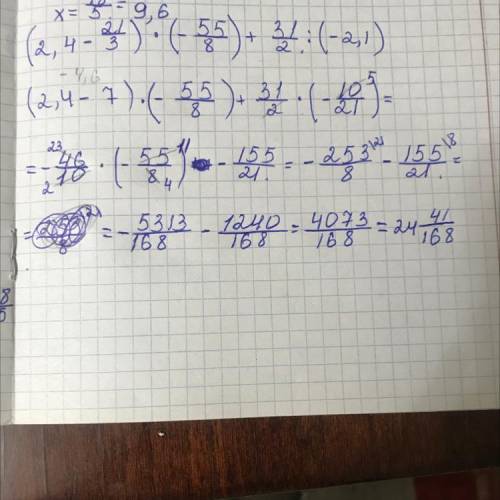 x = 10/5 = 9,6
(2,4 - 21/3) · (- 55/8) + 31/2 : (-2,1)
-4,6
(2,4 - 7) · (- 55/8) + 31/2 · (- 10/21) 5 =
= - 23 46/10 2 · (- 55/8) 11 4 - 155/21 = - 253/8 \21 - 155/21 \8 =
= = - 5313/168 - 1240/168 = 4073/168 = 24 41/168
8/5